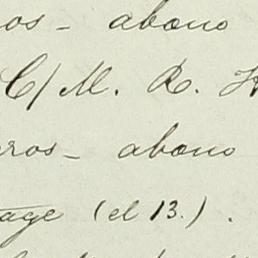 ros - abono
C/ M. R. H
eros - abono
age (el 13.).